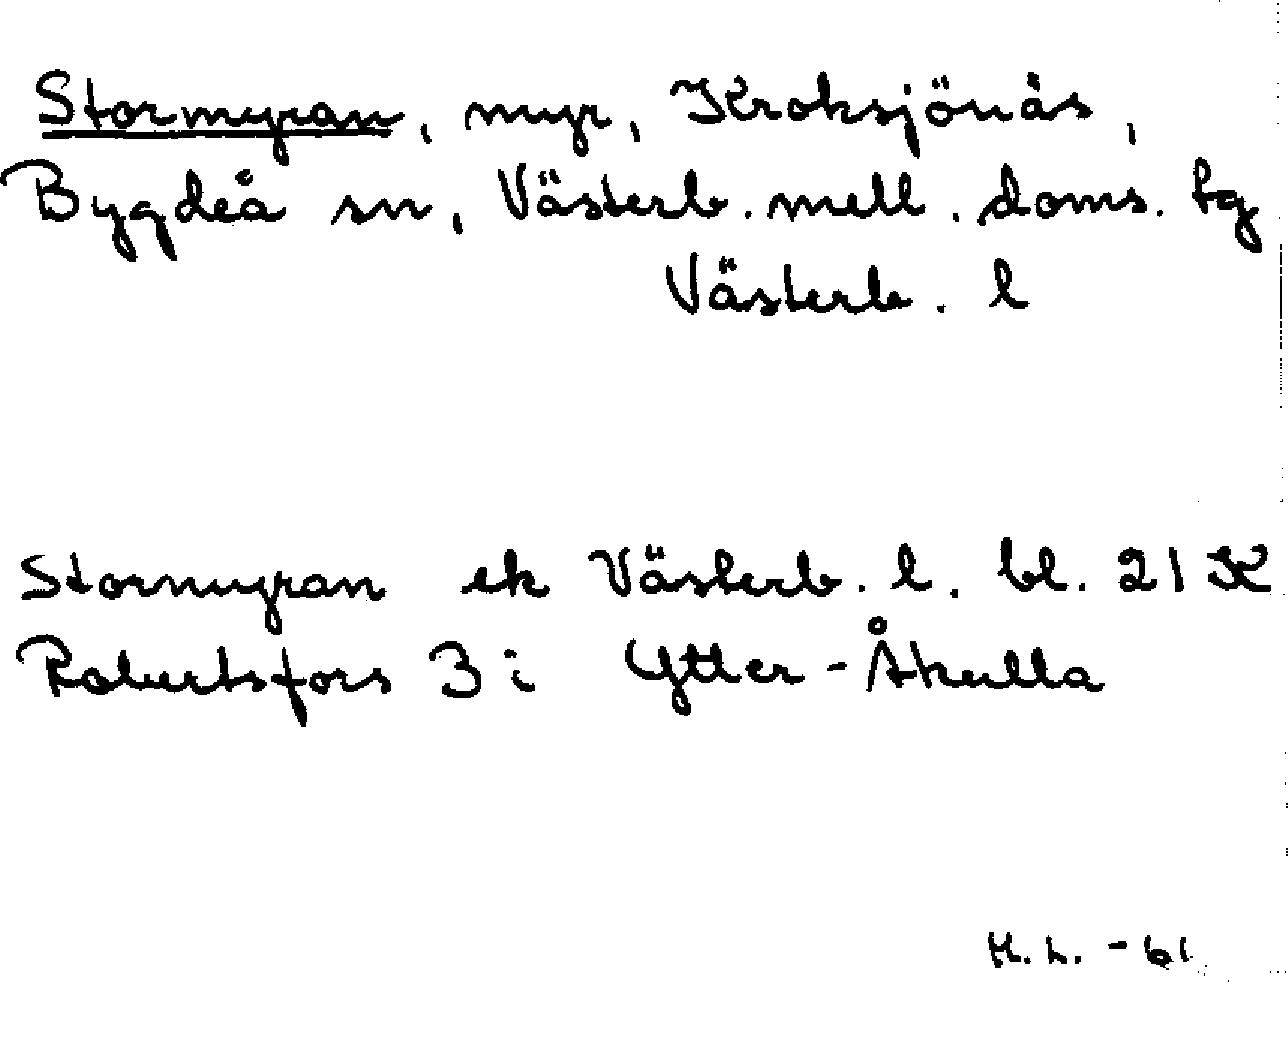 Stormyran, myr, Kroksjönäs,
Bygdeå sn, Västerb. mell. doms. tg
Västerb. l
Stormyran ek Västerb. l. bl. 21 K
Robertsfors 3 i Ytter-Åkulla
H. L. - 61